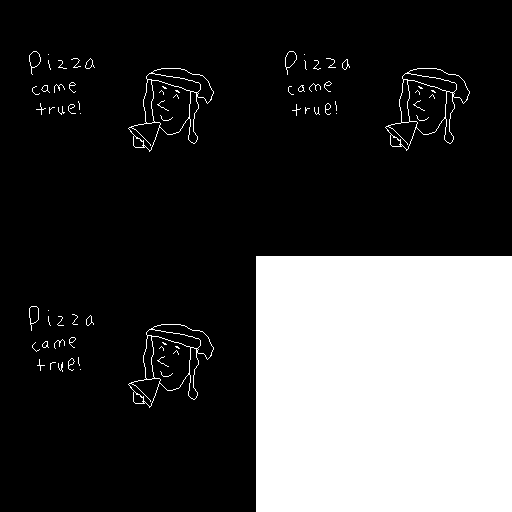 Pizza
came
true!
Pizza
came
true!
Pizza
came
true!